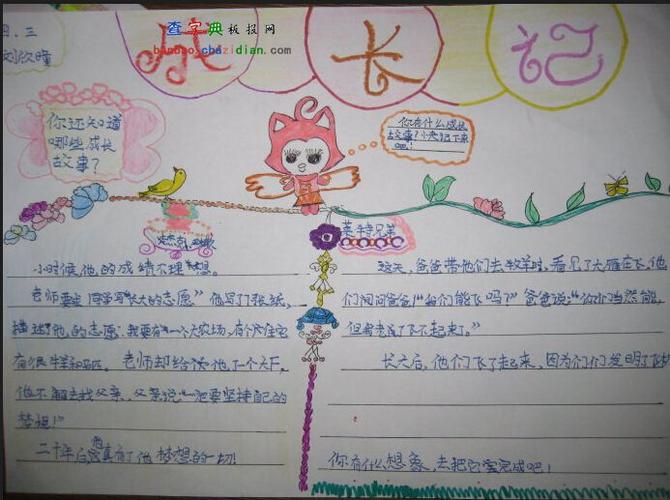 四.三
查字典板报网
banbao.chazidian.com
成长记
你还知道
哪些成长
故事？
你有什么成长
故事？小老师下来
吧！
莱特兄弟
小时候，他的成绩不理想。
老师要生同学写“长大的志愿”他写了7张纸，
描述他的志愿：我要有一个大农场，
有很牛羊和马匹。老师却给
他不解去找父亲，父亲说“一定要坚持自己的
梦想！”
二十年后他真有了他梦想的一切！
这天，爸爸带他们去牧羊时，看见了大雁在飞，他
们问问爸爸！“我们能飞吗？”爸爸说：“你们当然能，
但爸老了飞不起来了。”
长大后，他们飞了起来，因为们们发明了飞机
你有什么想象，去把它完成吧！